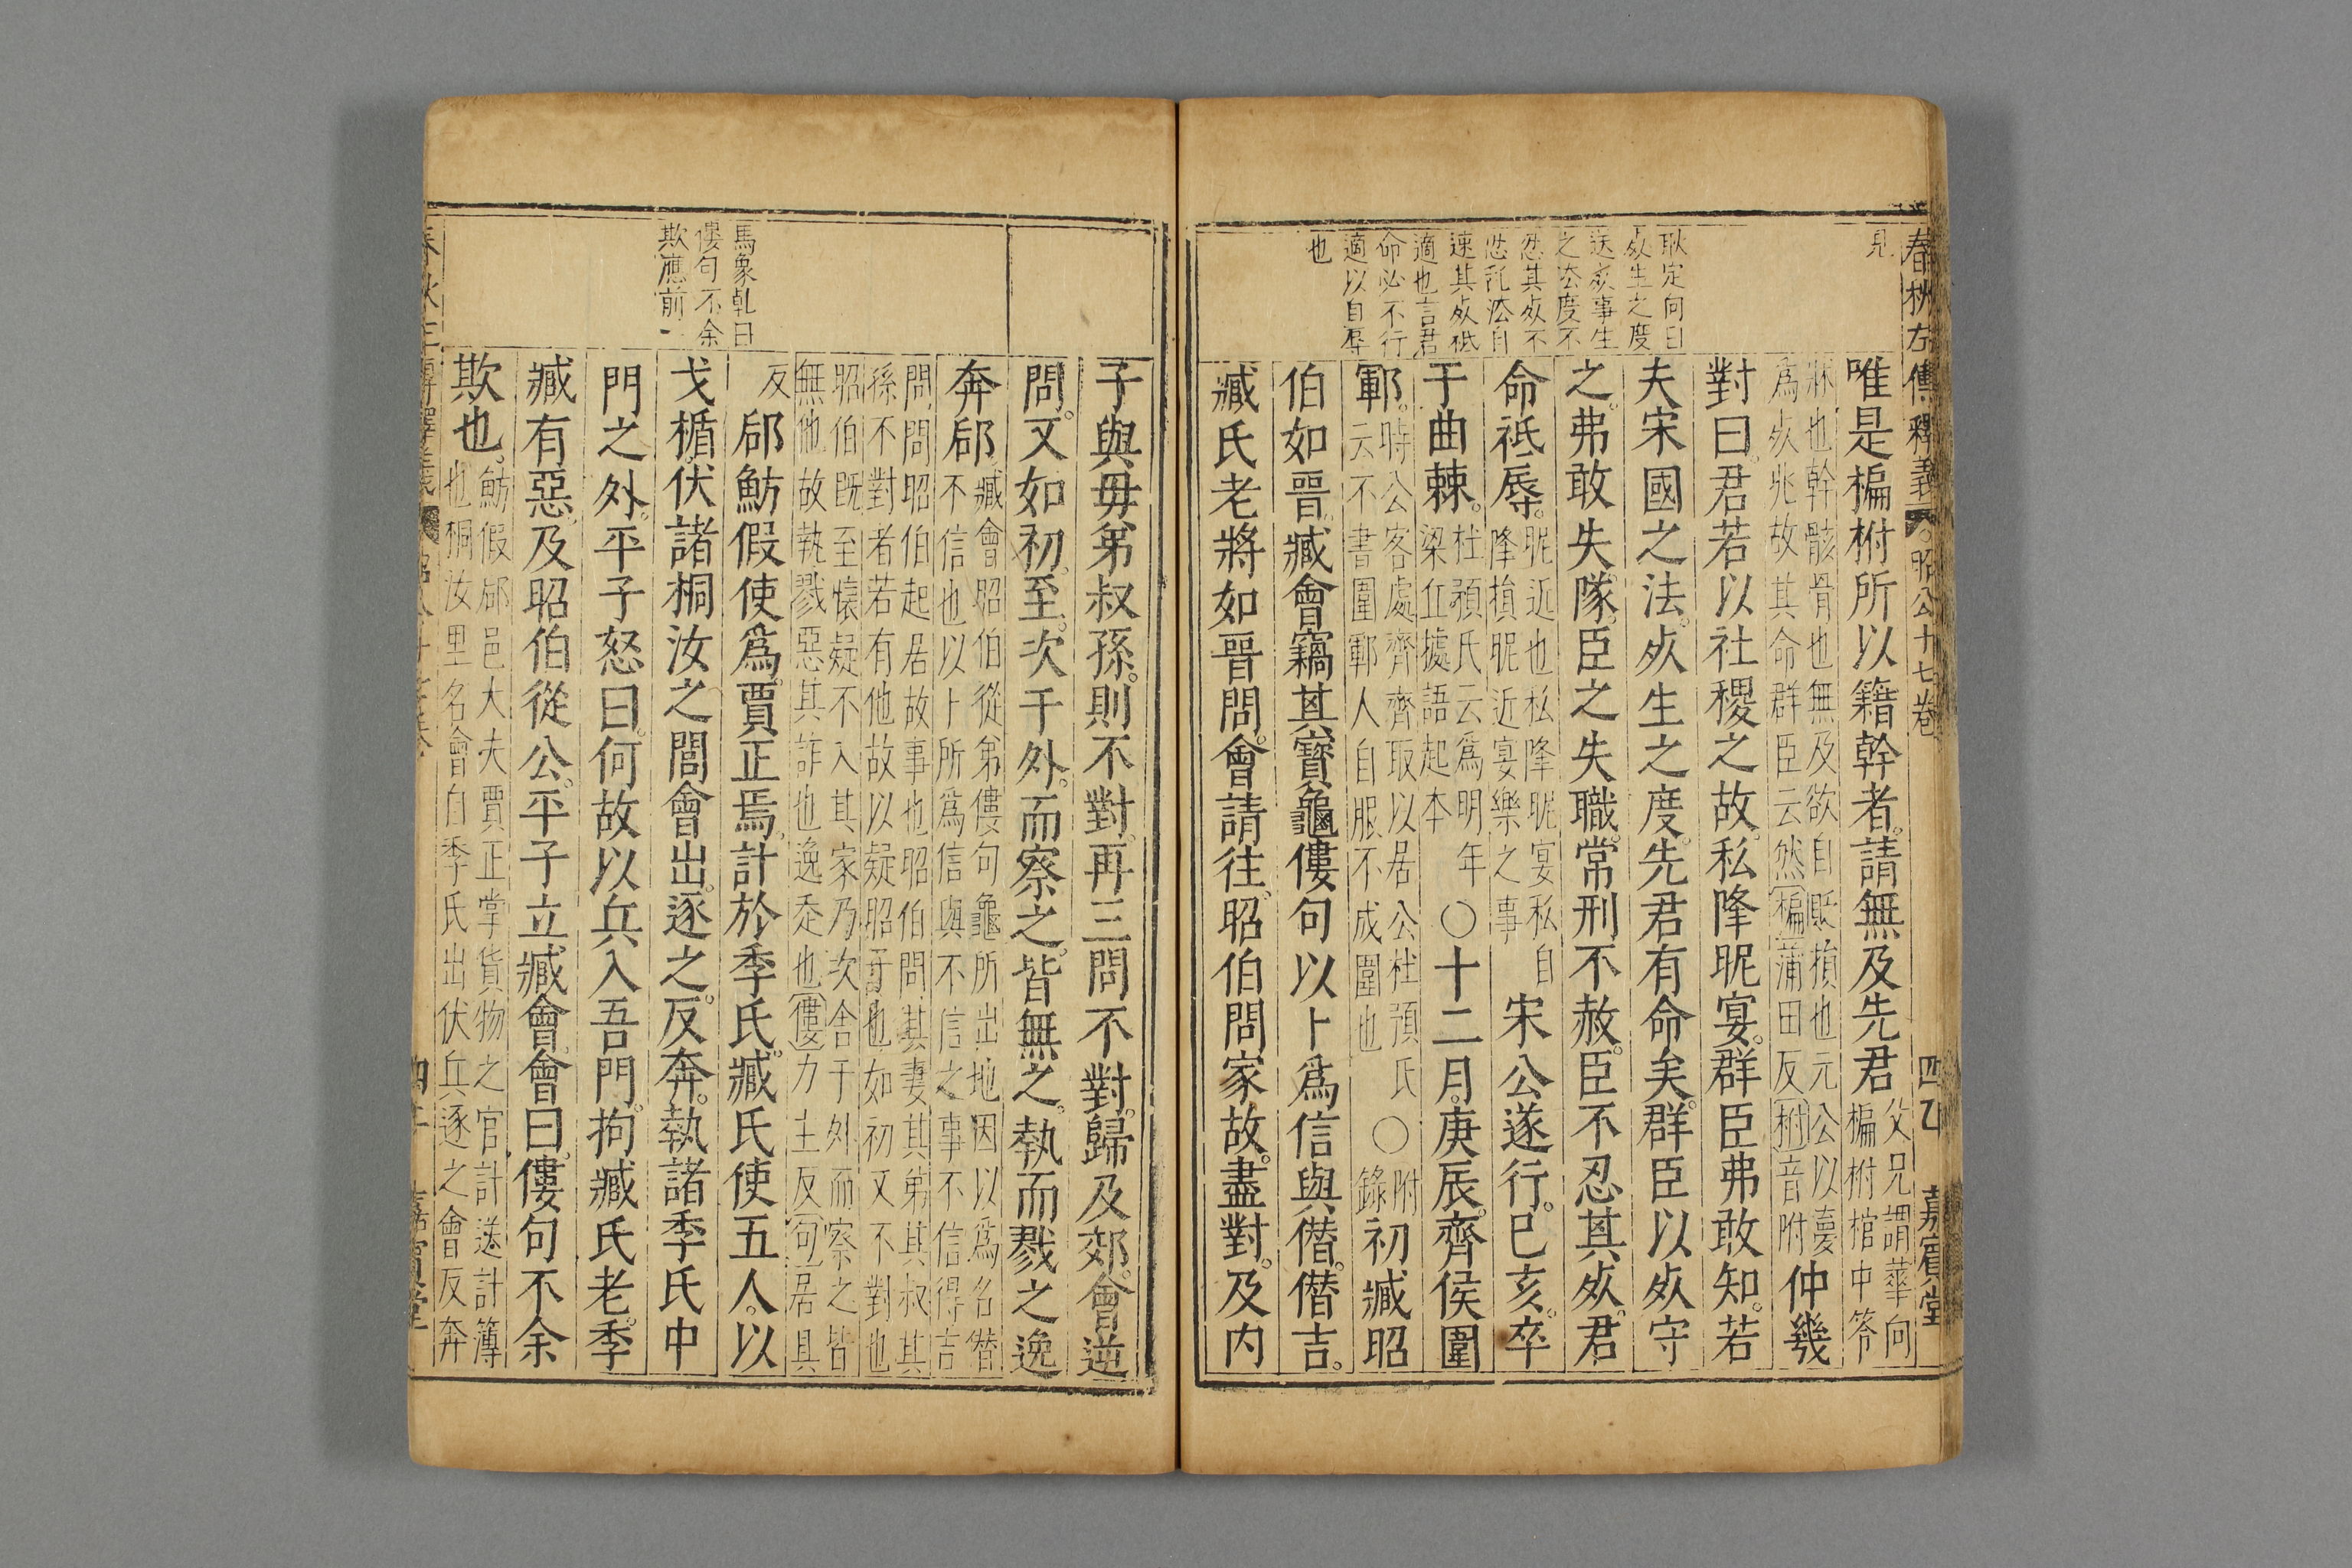 春秋左傳釋義 昭公十七卷 四乙 嘉賓堂
見
唯是楄柎所以籍幹者請無及先君 父兄謂華向 楄柎棺中笭
牀也幹骸骨也無及欲自貶損也元公以夢
為死兆故其命群臣云然楄蒲田反柎音附 仲幾
對曰君若以社稷之故私降昵宴群臣弗敢知若
夫宋國之法死生之度先君有命矣群臣以死守
之弗敢失隊臣之失職常刑不赦臣不忍其死君
命祗辱 昵近也私降昵宴私自 降損昵近宴樂之事 宋公遂行已亥卒
于曲棘 杜預氏云為明年 梁丘據語起本 〇十二月庚辰齊侯圍
鄆 時公客處齊齊取以居公杜預氏 云不書圍鄆人自服不成圍也 〇 附錄 初臧昭
伯如晉臧會竊其寶龜僂句以卜爲信與僭僭吉
臧氏老將如晉問會請往昭伯問家故盡對及内
耿定向曰
死生之度
送死事生
之法度不
忍其死不
忍秏法自
速其死祗
適也言君
命必不行
適以自辱
也
子與毋弟叔孫則不對再三問不對歸及郊會逆
問又如初至次于外而察之皆無之執而戮之逸
奔郈 臧會昭伯從弟僂句龜所出地因以爲名僭 不信也以卜所爲信與不信之事不信得吉
問問昭伯起居故事也昭伯問其妻其弟其叔其
孫不對者若有他故以疑昭于也如初又不對也
昭伯既至懷疑不入其家乃次舍于外而察之皆
無他故執戮惡其詐也逸走也僂力主反句居具
反 郈魴假使爲賈正焉計於季氏臧氏使五人以
戈楯伏諸桐汝之閭會出逐之反奔執諸季氏中
門之外平子怒曰何故以兵入吾門拘臧氏老季
臧有惡及昭伯從公平子立臧會會曰僂句不余
欺也 魴假郈邑大夫賈正掌貨物之官計送計簿 也桐汝里名會自季氏出伏兵逐之會反奔
馬象乹曰
僂句不余
欺應前